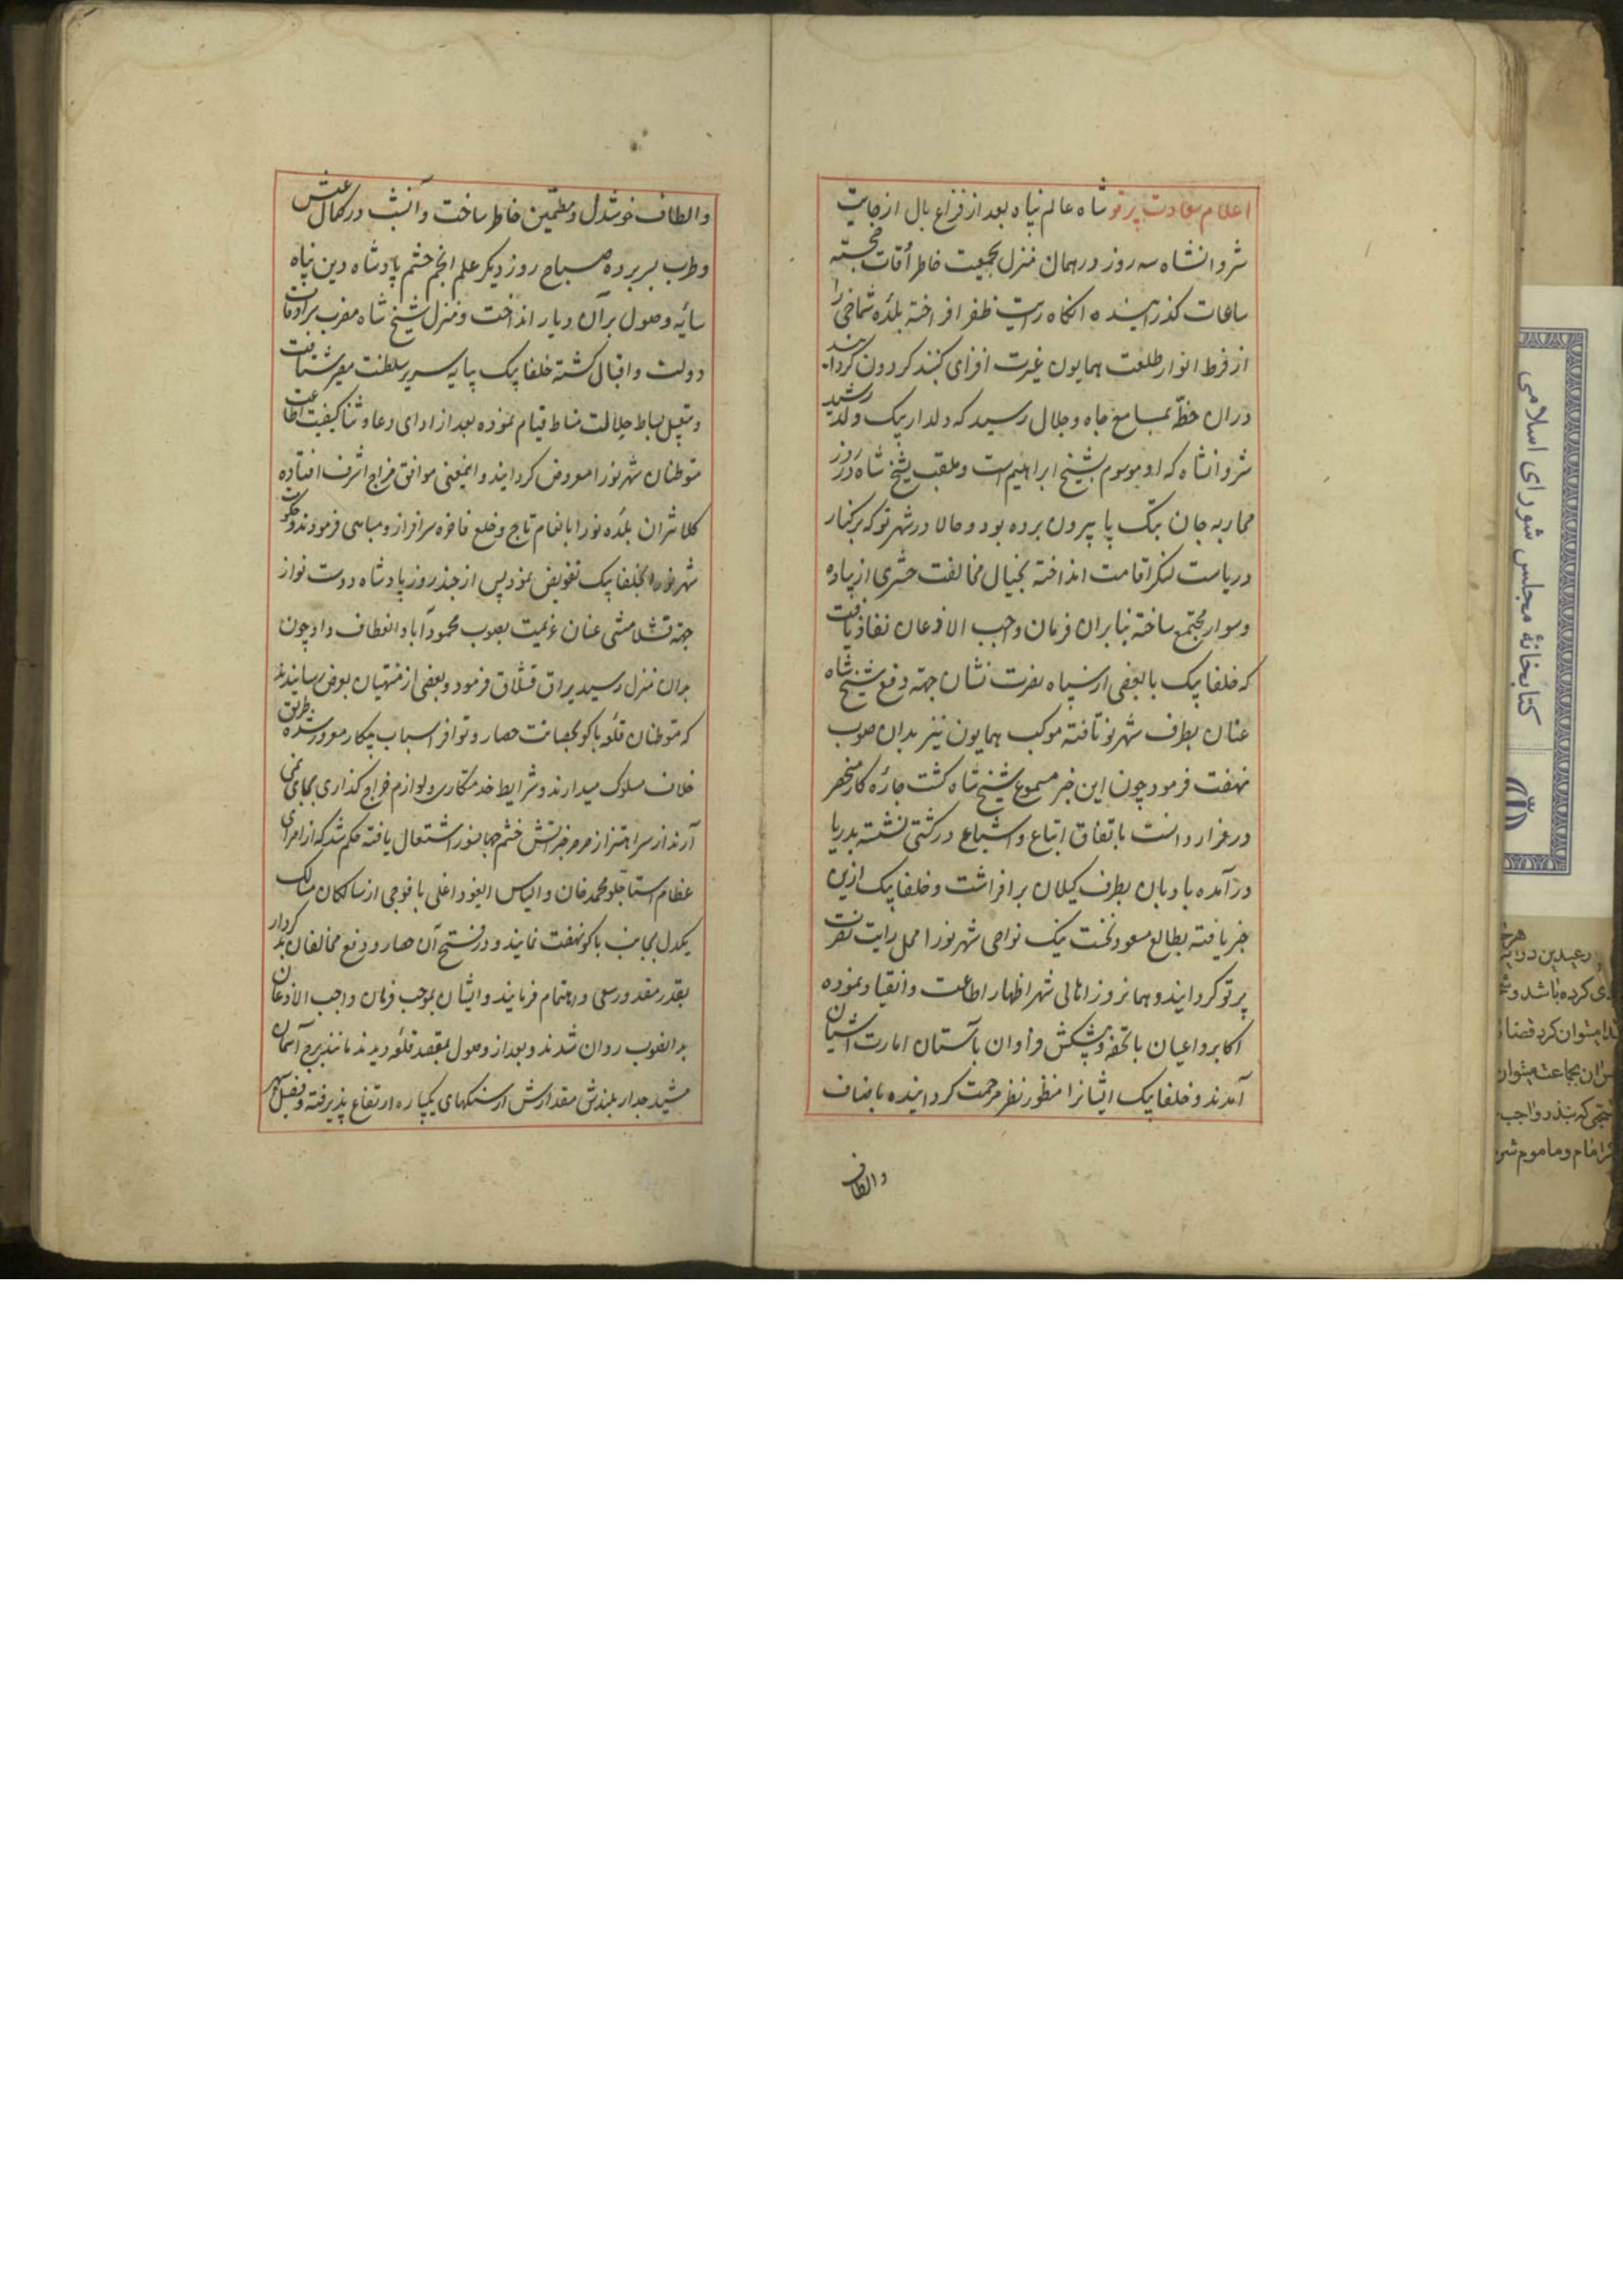 اعلام سعادت پرتو شاه عالم پناه بعد از فراغ بال از جانب
شروانشاه سه روز در همان منزل بجمعیت خاطر اوقات خجسته
ساعات گذرانیده آنگاه رایت ظفر افراخته بلده شماخی را
از فرط انوار طلعت همایون غیرت افزای گنبد گردون گردانید
دران خطه بمسامع جاه و جلال رسید که ولد ارشد
شروانشاه که او موسوم بشیخ ابراهیم است و ملقب بشیخ شاه در روز
محاربه جان بتک پا بیرون برده بود و حالا در شهر نو که بر کنار
دریاست لنکر اقامت انداخته بخیال مخالفت حشری از پیاده
و سوار مجتمع ساخته بنابران فرمان واجب الاذعان نفاذ یافت
که خلفا بیک با بعضی از سپاه نصرت نشان جهة دفع شیخ شاه
عنان بطرف شهر نو تافته موکب همایون نیز بدان صوب
نهضت فرمود چون این خبر مسموع شیخ شاه گشت چاره کار منحصر
در فرار دانست باتفاق اتباع و اشیاع در کشتی نشسته بدریا
درآمده بادبان بطرف کیلان برافراشت و خلفا بیک ازین
خبر یافته بطالع مسعود تخت یک نواحی شهر نو را محل رایت نصرت
پرتو گردانید و همانروز اهالی شهر اظهار اطاعت و انقیاد نموده
اکابر و اعیان با تحفه و پیشکش فراوان بآستان امارت آشیان
آمدند و خلفا بیک ایشانرا منظور نظر مرحمت گردانیده باصناف
والطاف
والطاف خوشدل و مطمئن خاطر ساخت و آنشب در کمال عیش
و طرب بسر برده صباح روز دیگر علم انجم حشم پادشاه دین پناه
سایه وصول بران دیار انداخت و منزل شیخ شاه مضرب سرادقات
دولت و اقبال گشته خلفا بیک بپایه سریر سلطنت مصیر شتافت
و بتقبیل بساط جلالت مناط قیام نموده بعد از ادای دعا و ثنا کیفیت اطاعت
متوطنان شهر نو را معروض گردانید و اینمعنی موافق مزاج اشرف افتاده
کلانتران بلده نو را بانعام تاج و خلع فاخره سرافراز و مباهی فرمودند و حکومت
شهر نو را بخلفا بیک تفویض نمود پس از چند روز پادشاه دوست نواز
جهة قشلامشی عنان عزیمت بصوب محمودآباد انعطاف داد چون
بدان منزل رسید یراق قشلاق فرمود و بعضی از منهیان بعرض رسانیدند
که متوطنان قلعه باکو بحصانت حصار و توافر اسباب پیکار مغرور شده طریق
خلاف مسلوک میدارند و شرایط خدمتکاری و لوازم خراج گذاری بجای نمی
آرند از سر اهتزاز صرصر خبر آتش خشم جهانسوز اشتعال یافته حکم شد که از امرای
عظام استاجلو محمد خان و الیاس ایغور اغلی با فوجی از سالکان مسالک
یکدل بجانب باکو نهضت نمایند و در فتح آن حصار و دفع مخالفان بد کردار
بقدر مقدور سعی و اهتمام فرمایند و ایشان بموجب فرمان واجب الاذعان
بدانصوب روان شدند و بعد از وصول بمقصد قلعه دیدند مانند برج آسمان
مشید جدار بلندش مقدارش از سنگهای یکپاره ارتفاع پذیرفته و فصیل
کتابخانهٔ مجلس شورای اسلامی